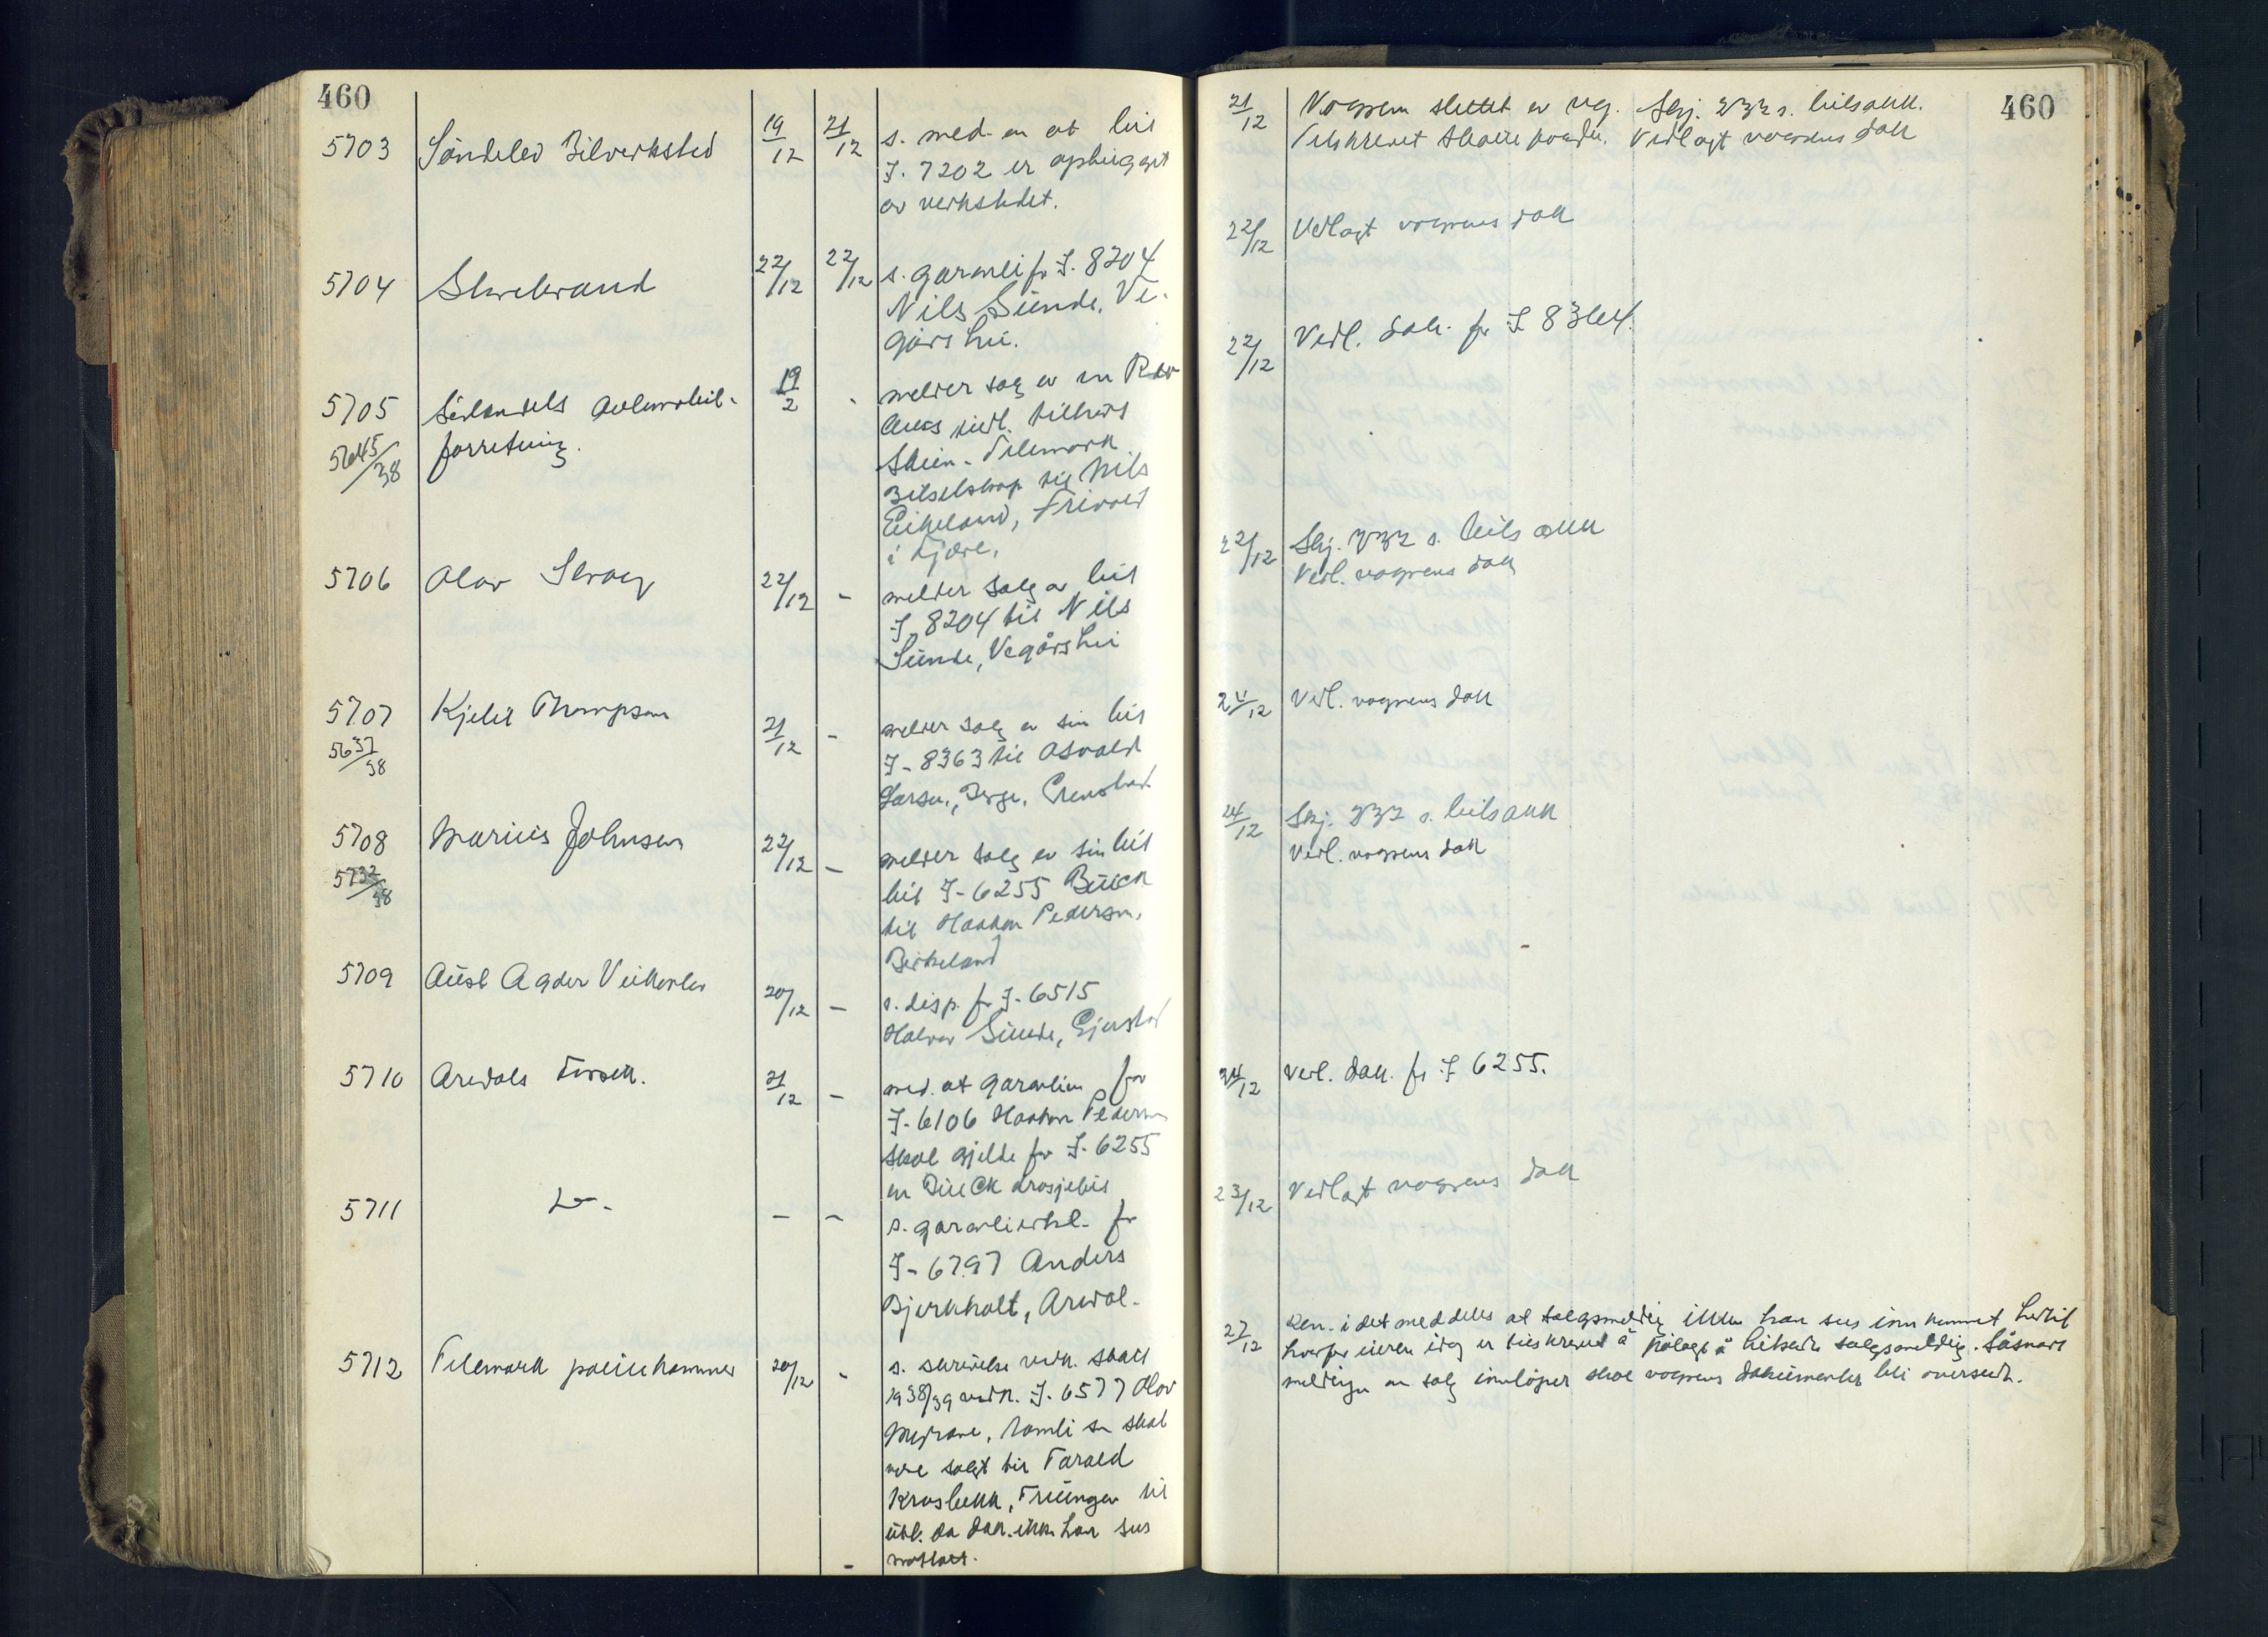 460
5703 Söndeled Bilverksted 19/12 21/12 s. med. om at bil
I. 7202 er ophugget
av verkstedet.
5704 Storebrand 22/12 22/12 s. garanti for I. 8204
Nils Sunde, Ve-
gårshei.
5705 Sörlandets Automobil- 19/2 -
5645/38 forretning.
melder salg av en Reo
Skien - Telemark
Bilselskap til Nils
Eikeland, Frivold
i Fjære.
5706 Olav Skrog 22/12 - melder salg av bil
I. 8204 til Nils
Sunde, Vegårshei
5707 Kjell Thompson 21/12 - melder salg av sin bil
5637/38 I - 8363 til Osvald
Larsen, Berge, Grimstad
5708 Marius Johnsen 22/12 - melder salg av sin bil
5732/38 bil I - 6255 Buick
til Haakon Pedersen,
Birkeland
5709 Aust Agder Veikontor 20/12 - s. disp. for I - 6515
Halvor Sunde, Gjerstad
5710 Arendals Forsik. 21/12 - med. at garantien for
I - 6106 Haakon Pedersen
skal gjelde for I - 6255
en Buick drosjebil
5711 Do - - - s. garantierkl. for
I - 6797 Anders
Bjorkholt, Arendal -
5712 Telemark politikammer 20/12 - s. skrivelse vedk. skatt
1938/39 vedk. I. 6577 Olov
Mejrane, Tomli som skal
være solgt til Tarald
Krosbekk, Treungen til
utl. da dok. ikke har sees
mottatt.
460
21/12 Vognen slettet av reg. Skj. 332 s. bilsakk.
Tilskrevet Skattefogden. Vedlagt vognens dok
22/12 Vedlagt vognens dok
22/12 Vedl. dok. for I 8364.
22/12 Skj. 332 s. bilsakk
Vedl. vognens dok
24/12 Vedl. vognens dok
24/12 Skj. 332 s. bilsakk
Vedl. vognens dok
24/12 Vedl. dok. for I 6255.
23/12 Vedlagt vognens dok
27/12 Ren. i det meddeles at salgsmelding ikke kan sees innkommet hertil
hvorfor eieren idag er tilskrevet å pålagt å innsende salgsmelding. Såsnart
meldingen om salg innlöper skal vognens dokumenter bli oversendt.